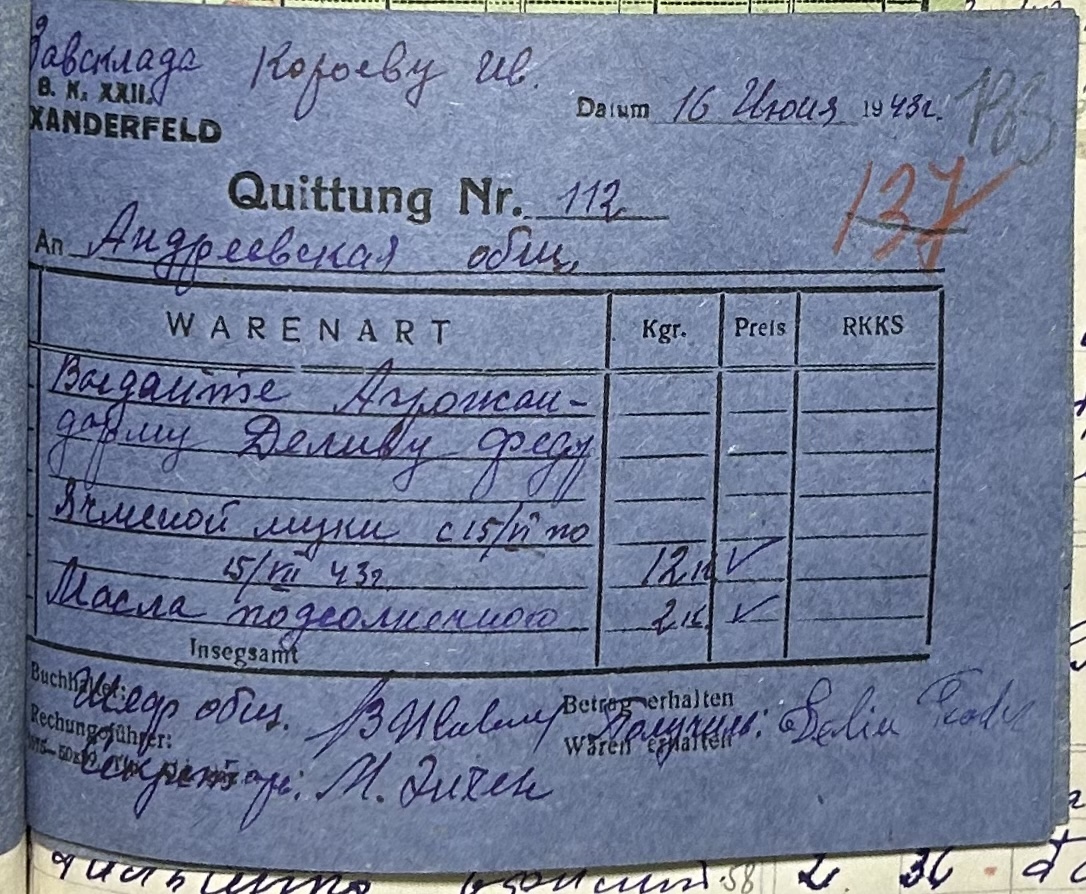 Завсклада Короеву Ив.
B. K. XXII.
XANDERFELD
Datum 16 Июня 1943г.
183
Quittung Nr. 112
137
An Андреевская общ.
WARENART Kgr. Preis RKKS
Выдайте Агрожан-
дарму Деливу Феду
Ячменой муки с 15/VI по
15/VII 43г. 12к ✓
Масла подсолнечного 2к. ✓
Insegsamt
Buchhalter: Шеф общ.
Betrag erhalten
Rechungsführer: Получил: Deliu
Waren erhalten
Секретарь: М.